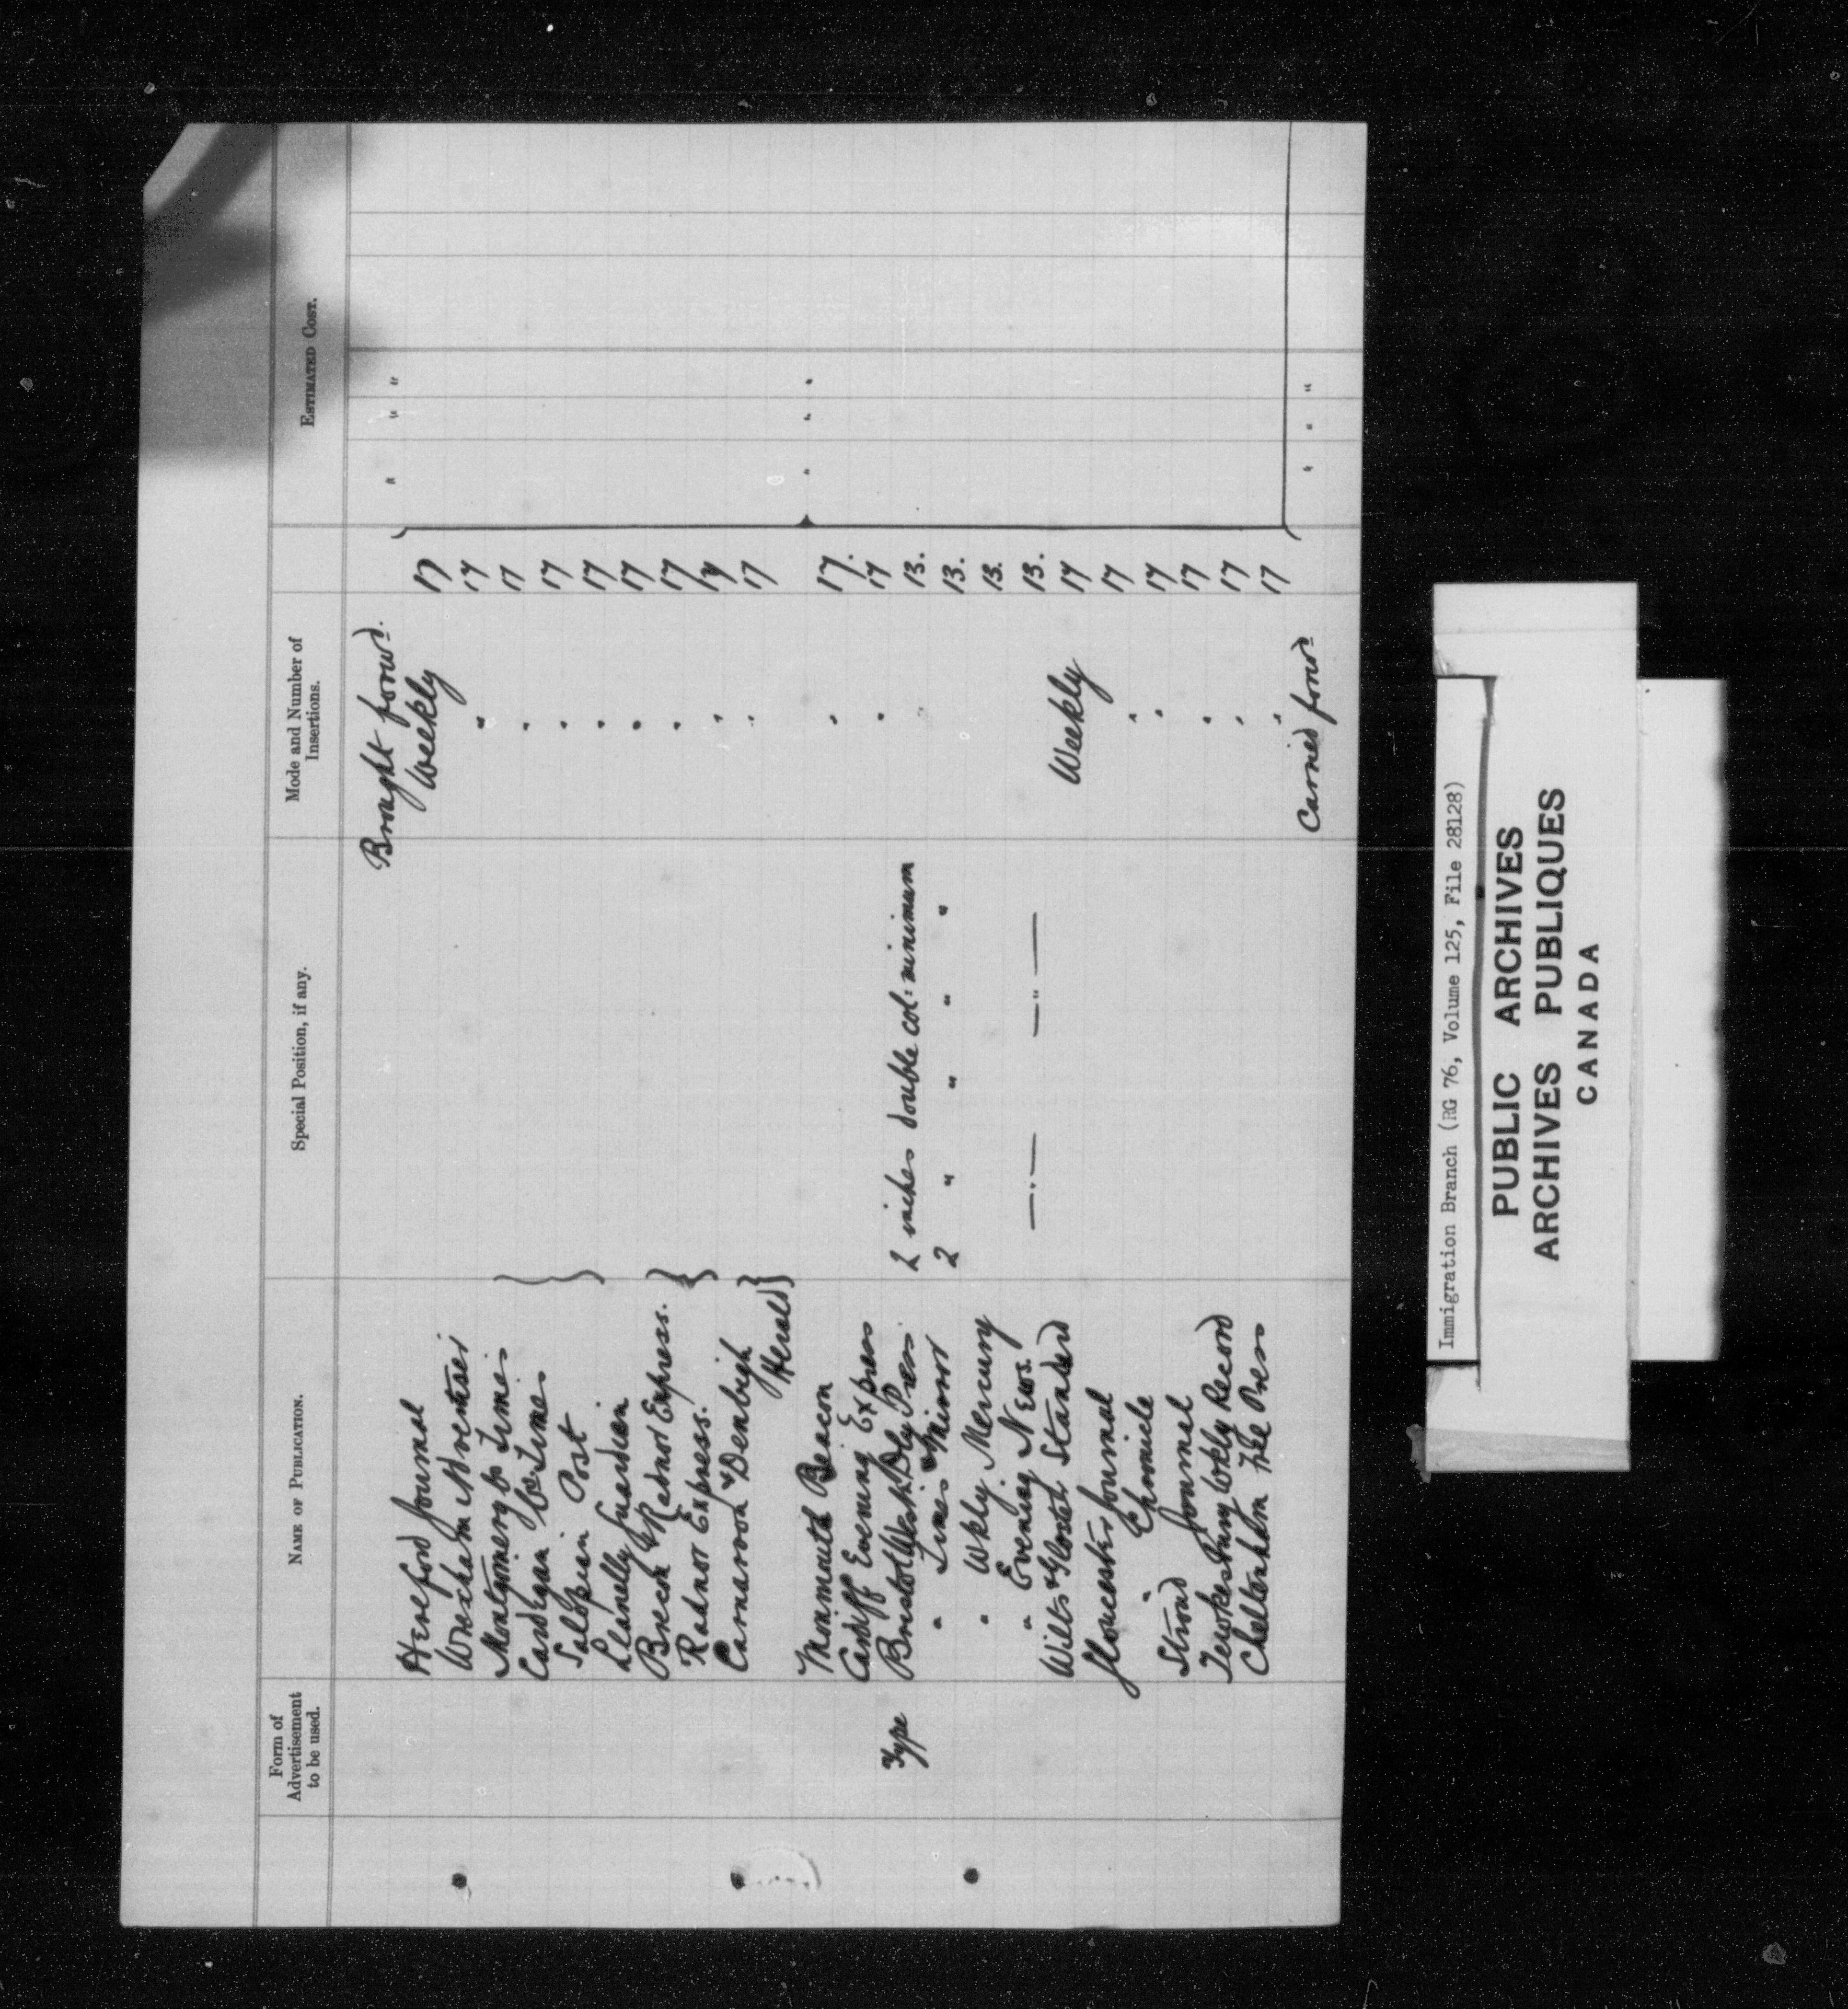 Form of Advertisement to be used. NAME OF PUBLICATION. Special Position, if any. Mode and Number of Insertions. ESTIMATED COST.
Brought forwd. " " "
Hereford Journal Weekly 17
Wrexham Advertiser " 17
Montgomery Co Times " 17
Cardigan Co Times " 17
Salopian Post " 17
Llanelly Guardian " 17
Brecon & Radnor Express. " 17
Radnor Express. " 17
Carnarvon & Denbigh Herald " 17
" " "
Monmouth Beacon " 17.
Cardiff Evening Express " 17
Type Bristol West Dly Press. 2 inches double col: minimum 13.
" Times & Mirror 2 " " " " 13.
" Wkly. Mercury 13.
" Evening News. — " — — " — 13.
Wilts & Gloster Standard Weekly 17
Gloucester Journal " 17
" Chronicle " 17
Stroud Journal " 17
Tewkesbury Wkly Record " 17
Cheltenham Free Press " 17
Carried forwd " " "
Immigration Branch (RG 76, Volume 125, File 28128)
PUBLIC ARCHIVES
ARCHIVES PUBLIQUES
CANADA